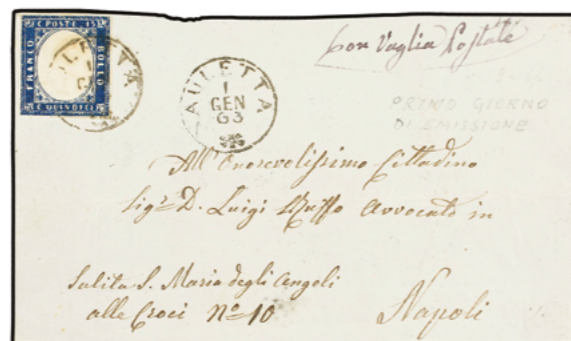 C. POSTE. 15
FRANCO
BOLLO
C. QUINDICI
AULETTA
1
GEN
63
Con Vaglia Postale
PRIMO GIORNO
DI EMISSIONE
All'Onorevolissimo Cittadino
Sigr. D. Luigi Ruffo Avvocato in
Salita S. Maria degli Angeli
alle Croci No 10
Napoli